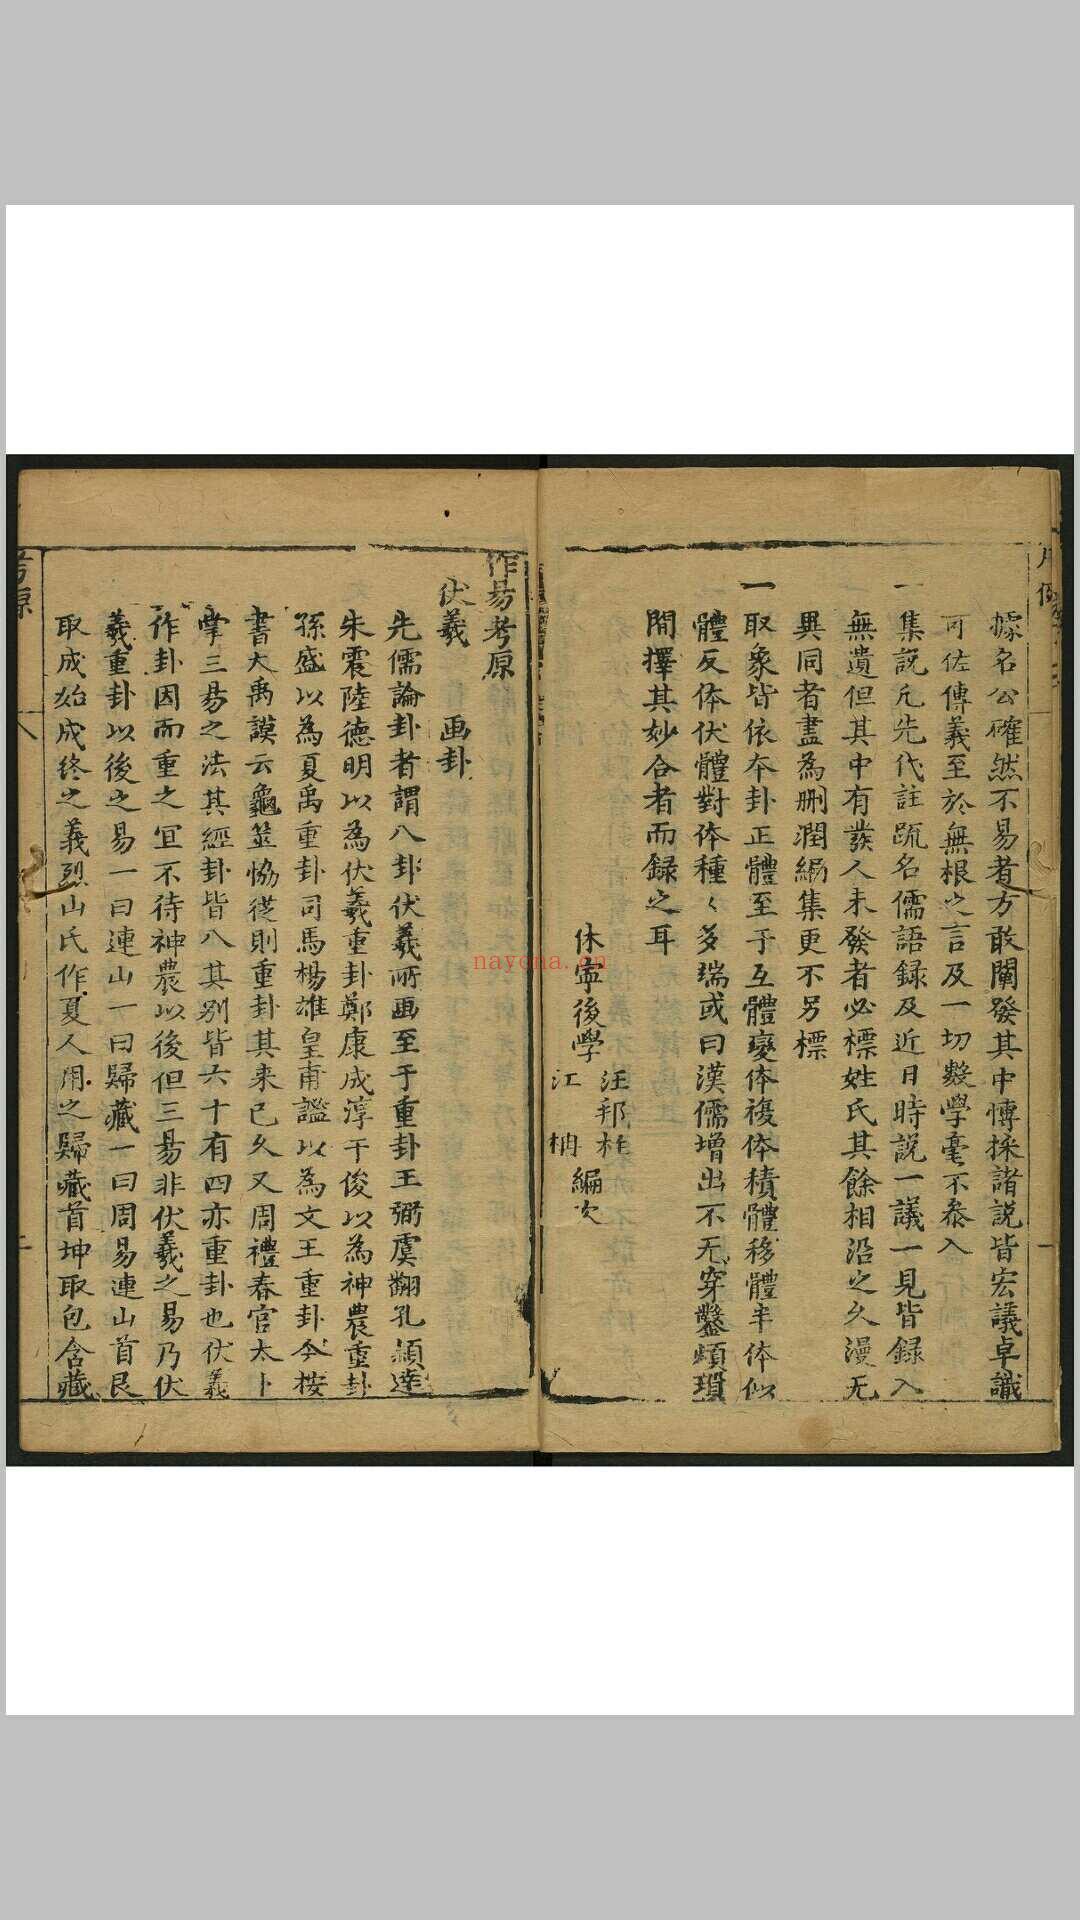 凡例
據名公確然不易者方敢闡發其中愽採諸説皆宏議卓識
可佐傳義至於無根之言及一切數學毫不叅入
一集説凡先代註䟽名儒語録及近日時説一議一見皆録入
無遺但其中有發人未發者必標姓氏其餘相沿之乆漫无
異同者盡為删潤編集更不另標
一取象皆依夲卦正體至于互體變体複体積體移體半体似
體反体伏體對体種〻多瑞或曰漢儒增出不无穿鑿煩瑣
間擇其妙合者而録之耳
休寧後學
汪邦柱
江柟
編次
作易考原
伏羲 画卦
先儒論卦者謂八卦伏羲所画至于重卦王弼虞翻孔頴達
朱震陸德明以為伏羲重卦鄭康成淳于俊以為神農重卦
孫盛以為夏禹重卦司馬楊雄皇甫謐以為文王重卦今按
書大禹謨云龜筮恊從則重卦其来已久又周禮春官太卜
掌三易之法其經卦皆八其别皆六十有四亦重卦也伏羲
作卦因而重之宜不待神農以後但三易非伏羲之易乃伏
羲重卦以後之易一曰連山一曰歸藏一曰周易連山首艮
取成始成終之義烈山氏作夏人用之歸藏首坤取包含藏
考原
nayona.cn